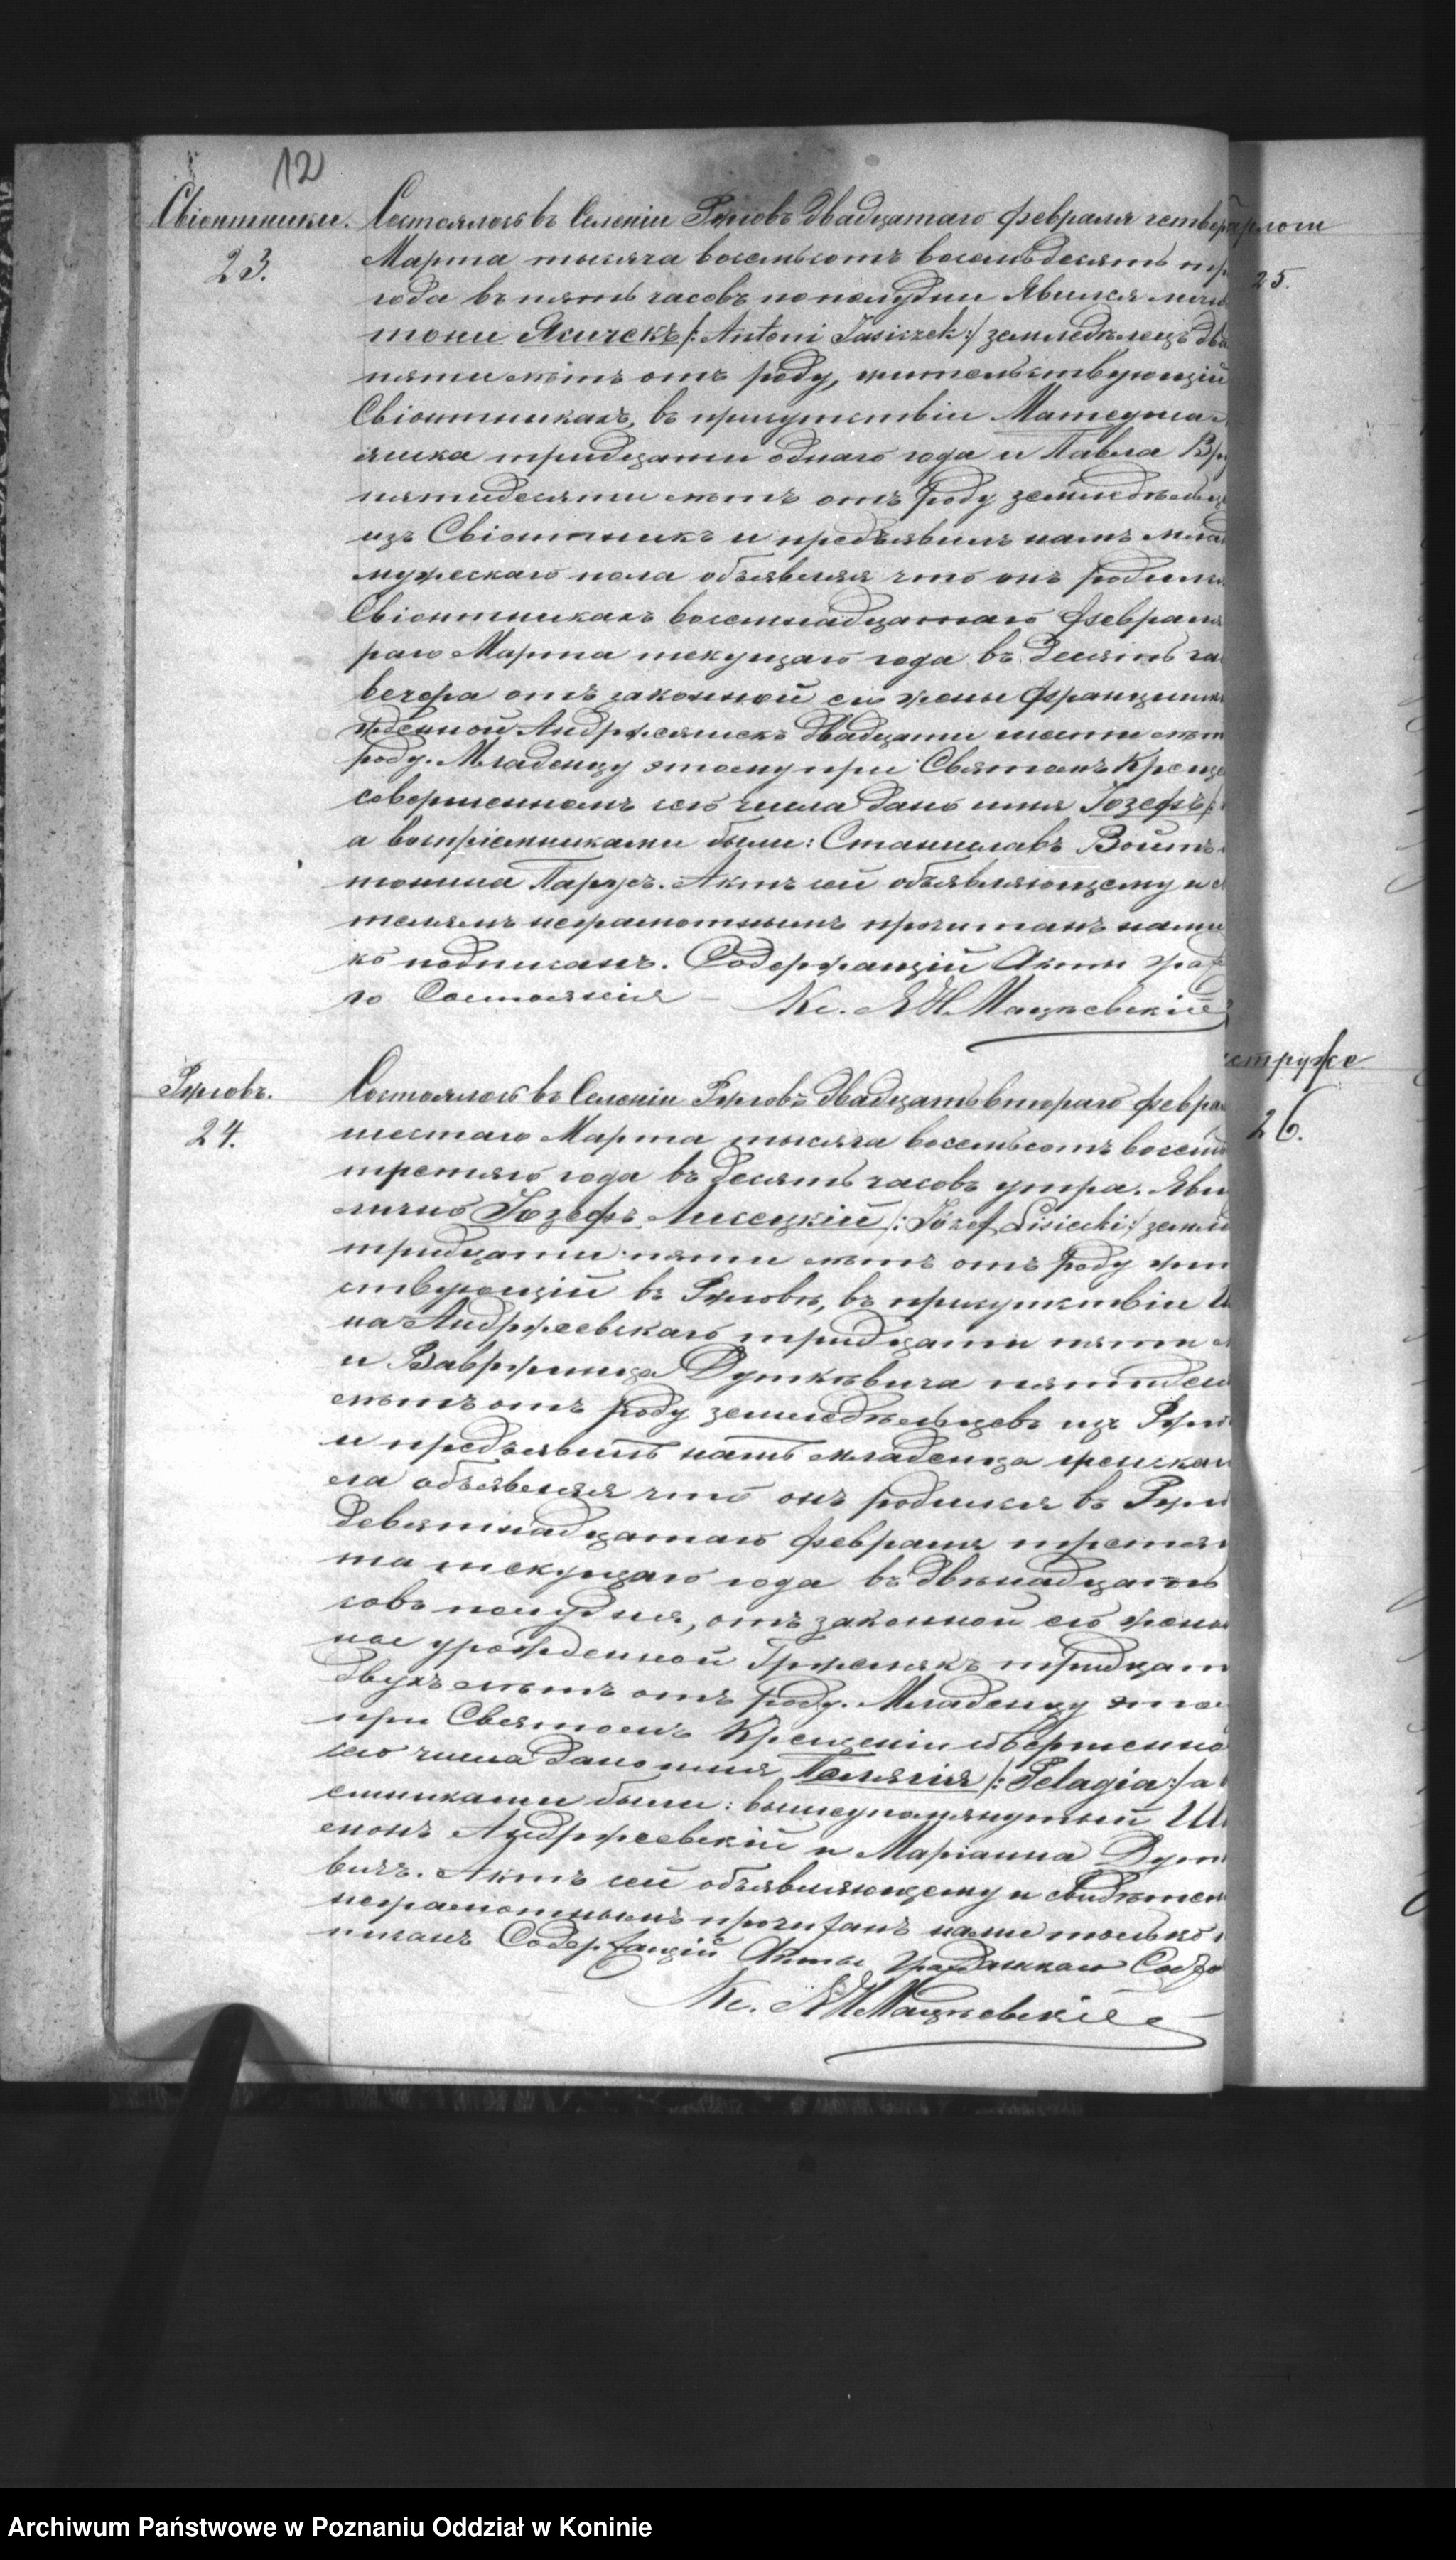 12
Свіонтники.
23.
Состоялось въ Селеніи Ржговъ двадцатаго февраля четвер
Марта тысяча восемьсотъ восемьдесятъ тр
года въ пять часовъ пополудни Явился личн
тони Ясичекъ /: Antoni Jasiczek :/ земледѣлецъ два
пяти лѣтъ отъ роду, жительствующій
Свіонтникахъ, въ присутствіи Матеуша
яшка тридцати однаго года и Павла
пятидесяти лѣтъ отъ роду земледѣльце
изъ Свіонтникъ и предъявилъ намъ млад
мужескаго пола объявляя что онъ родилс
Свіонтникахъ восемнадцатаго февраля
раго Марта текущаго года въ десять ча
вечера отъ законной его жены Францишк
жденной Андржеяшекъ двадцати шести лѣт
роду. Младенцу этому при Святомъ Креще
совершенномъ сего числа дано имя Іозефъ /:
а воспріемниками были: Станиславъ Войт
тонина Паруж. Актъ сей объявляющему и с
телямъ неграмотнымъ прочитанъ нами
ко подписанъ. Содержащій Акты граж
го Состоянія – Кс. Я Н Мацѣевскій
Ржговъ.
24.
Состоялось въ Селеніи Ржговъ двадцать втораго февра
шестаго Марта тысяча восемьсотъ восемь
третяго года въ десять часовъ утра. Яви
лично Іозефъ Лисецкій /: Józef Lisiecki :/ земле
тридцати пяти лѣтъ отъ роду жит
ствующій въ Ржговѣ, въ присутствіи
на Андржеевскаго тридцати пяти л
и Вавржинца Дуткѣвича пятидеся
лѣтъ отъ роду земледѣльцевъ изъ Ржго
и предъявилъ намъ младенца женскаг
ла объявляя что онъ родился въ Ржго
девятнадцатаго февраля третя
та текущаго года въ двѣнадцать
совъ полудня, отъ законной его жены
ное урожденной Гржелякъ тридцат
двухъ лѣтъ отъ роду. Младенцу это
при Святомъ Крещеніи совершенно
сего числа дано имя Пелягія /: Pelagia :/ а
емниками были: вышеупомянутый
монъ Андржеевскій и Маріанна Дут
вичъ. Актъ сей объявляющему и свидѣтел
неграмотнымъ прочитанъ нами только
писанъ Содержащій Акты Гражданскаго Состо
Кс. Я Н Мацѣевскій
25.
струже
26.
Archiwum Państwowe w Poznaniu Oddział w Koninie